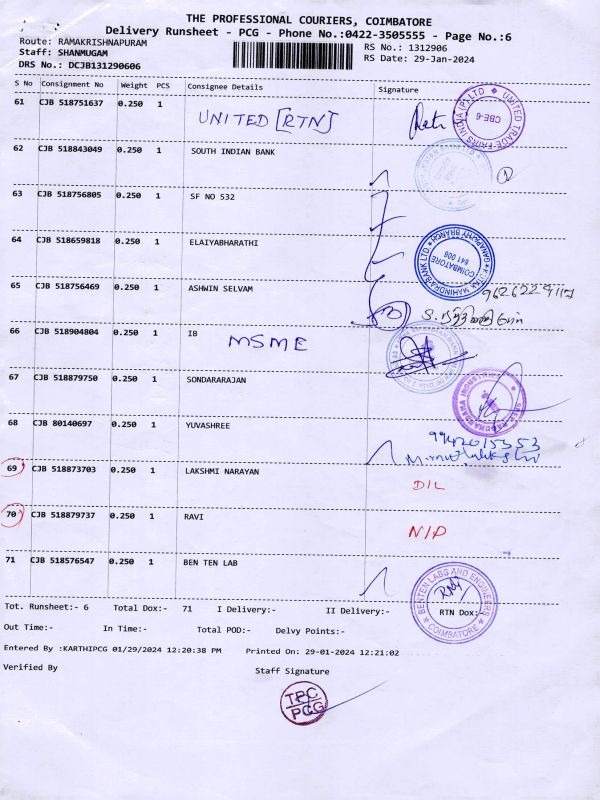 THE PROFESSIONAL COURIERS, COIMBATORE
Delivery Runsheet - PCG - Phone No.:0422-3505555 - Page No.:6
Route: RAMAKRISHNAPURAM
RS No.: 1312906
Staff: SHANMUGAM
RS Date: 29-Jan-2024
DRS No.: DCJB131290606
S No Consignment No Weight PCS Consignee Details Signature
61 CJB 518751637 0.250 1 UNITED [RTN]
UNITED TRADE FAIRS INDIA (P) LTD
CBE-6
62 CJB 518843049 0.250 1 SOUTH INDIAN BANK
63 CJB 518756805 0.250 1 SF NO 532
64 CJB 518659818 0.250 1 ELAIYABHARATHI
COIMBATORE
641 006
65 CJB 518756469 0.250 1 ASHWIN SELVAM
66 CJB 518904804 0.250 1 IB
MSME
67 CJB 518879750 0.250 1 SONDARARAJAN
68 CJB 80140697 0.250 1 YUVASHREE
9942015353
69 CJB 518873703 0.250 1 LAKSHMI NARAYAN
D/L
70 CJB 518879737 0.250 1 RAVI
N/D
71 CJB 518576547 0.250 1 BEN TEN LAB
BENTEN LABS AND ENGINEERS
COIMBATORE
Tot. Runsheet:- 6 Total Dox:- 71 I Delivery:- II Delivery:- RTN Dox:-
Out Time:- In Time:- Total POD:- Delvy Points:-
Entered By :KARTHIPCG 01/29/2024 12:20:38 PM Printed On: 29-01-2024 12:21:02
Verified By Staff Signature
TPC
PCG